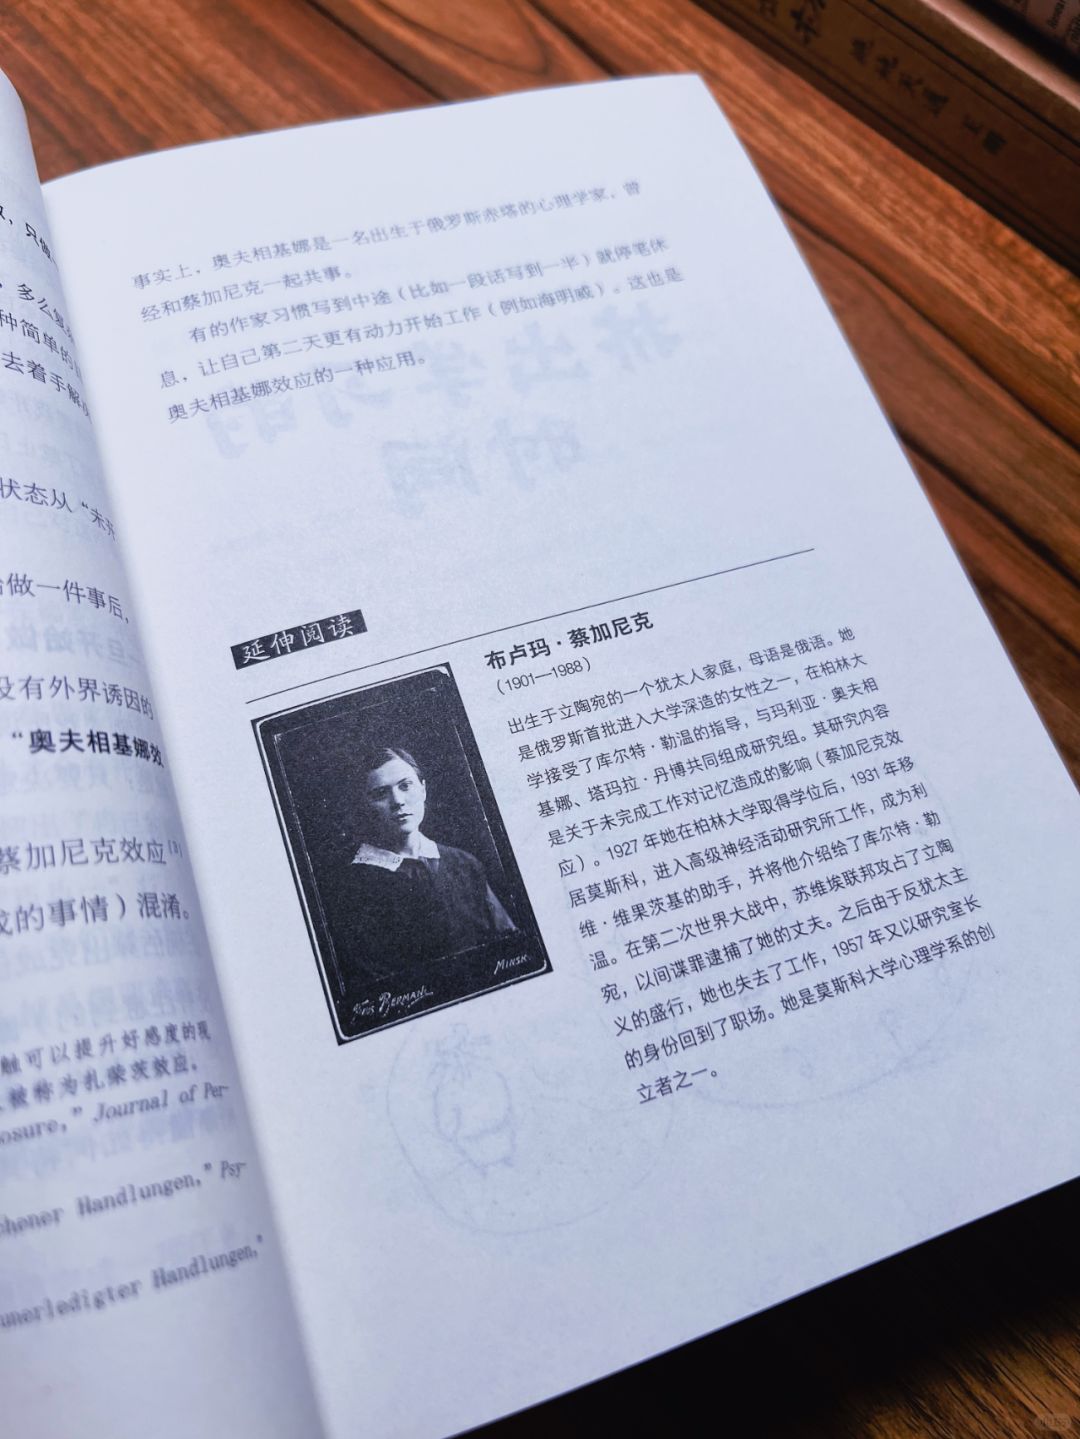 敢，只做
，多么复杂
种简单的
去着手解决
状态从“未开
始做一件事后，
没有外界诱因的
“奥夫相基娜效
蔡加尼克效应[3]
成的事情）混淆。
触可以提升好感度的现
被称为扎荣茨效应，
osure,” Journal of Per-
chener Handlungen,” Psy-
unerledigter Handlungen,”
事实上，奥夫相基娜是一名出生于俄罗斯赤塔的心理学家，曾
经和蔡加尼克一起共事。
有的作家习惯写到中途（比如一段话写到一半）就停笔休
息，让自己第二天更有动力开始工作（例如海明威）。这也是
奥夫相基娜效应的一种应用。
延伸阅读
布卢玛·蔡加尼克
（1901—1988）
出生于立陶宛的一个犹太人家庭，母语是俄语。她
是俄罗斯首批进入大学深造的女性之一，在柏林大
学接受了库尔特·勒温的指导，与玛利亚·奥夫相
基娜、塔玛拉·丹博共同组成研究组。其研究内容
是关于未完成工作对记忆造成的影响（蔡加尼克效
应）。1927 年她在柏林大学取得学位后，1931 年移
居莫斯科，进入高级神经活动研究所工作，成为利
维·维果茨基的助手，并将他介绍给了库尔特·勒
温。在第二次世界大战中，苏维埃联邦攻占了立陶
宛，以间谍罪逮捕了她的丈夫。之后由于反犹太主
义的盛行，她也失去了工作，1957 年又以研究室长
的身份回到了职场。她是莫斯科大学心理学系的创
立者之一。
BERMAN.
MINSK.